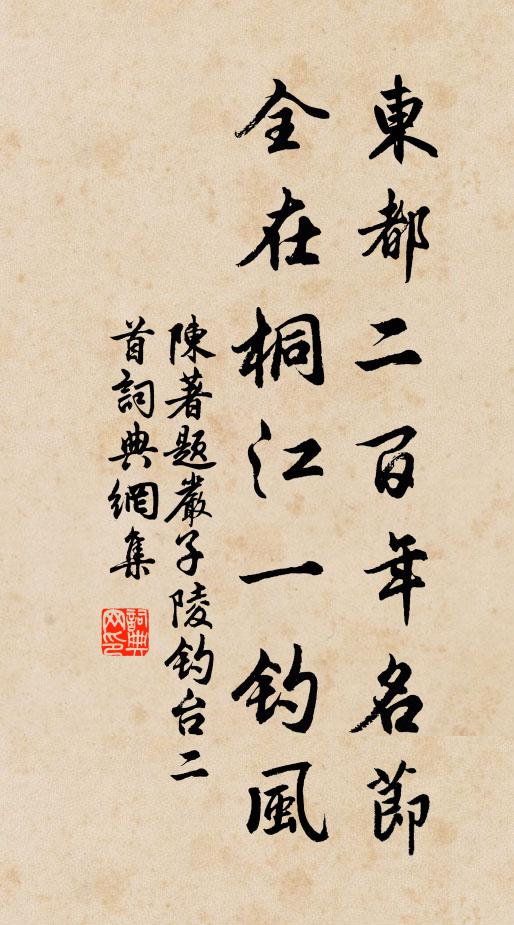 東都二百年名節
全在桐江一釣風
陳著題嚴子陵釣台二
首詞典網集
詞典網印